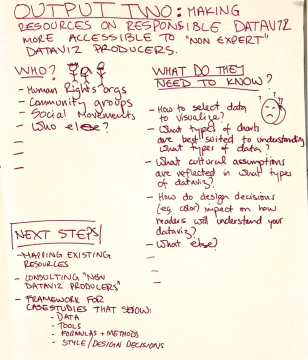 OUTPUT TWO: MAKING
RESOURCES ON RESPONSIBLE DATAVIZ
MORE ACCESSIBLE TO "NON EXPERT"
DATAVIZ PRODUCERS.
WHO?
- Human Rights orgs
- Community groups
- Social Movements
- Who else?
-
-
-
WHAT DO THEY
NEED TO KNOW?
- How to select data
to visualize?
- What types of charts
are best suited to understanding
what types of data?
- What cultural assumptions
are reflected in what types
of dataviz?
- How do design decisions
(eg color) impact on how
readers will understand your
dataviz?
- What else?
-
-
-
NEXT STEPS
- MAPPING EXISTING
RESOURCES
- CONSULTING "NEW
DATAVIZ PRODUCERS"
- FRAMEWORK FOR
CASESTUDIES THAT SHOW:
- DATA
- TOOLS
- FORMULAS + METHODS
- STYLE/DESIGN DECISIONS